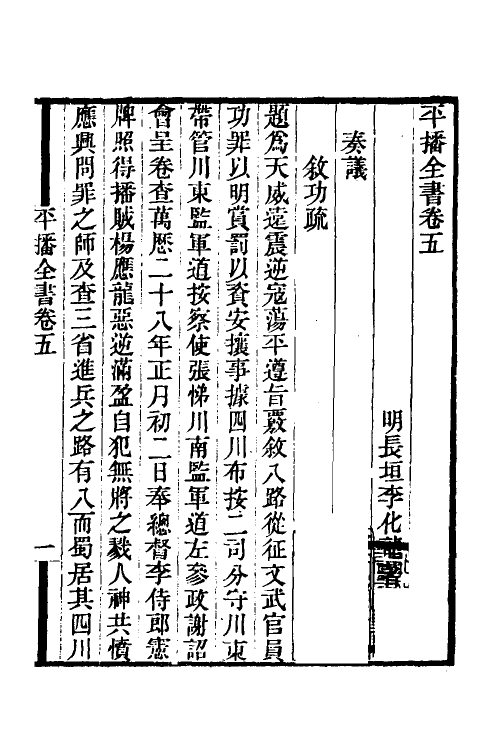 平播全書卷五
明長垣李化龍著
奏議
敘功疏
題爲天威遠震逆寇蕩平遵旨覈敘八路從征文武官員
功罪以明賞罰以資安攘事據四川布按二司分守川東
帶管川東監軍道按察使張悌川南監軍道左參政謝詔
會呈卷查萬歷二十八年正月初二日奉總督李侍郎憲
牌照得播賊楊應龍惡逆滿盈自犯無將之戮人神共憤
應興問罪之師及查三省進兵之路有八而蜀居其四川
平播全書卷五
一